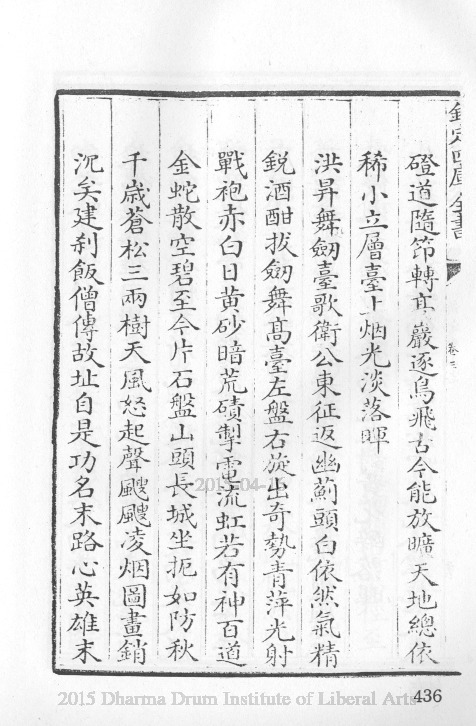 欽定四庫全書
卷三
磴道隨節轉高巖逐鳥飛古今能放曠天地總依
稀小立層臺上烟光淡落暉
洪昇舞劒臺歌衛公東征返幽薊頭白依然氣精
銳酒酣拔劒舞髙臺左盤右旋出奇勢青萍光射
戰袍赤白日黄砂暗荒磧掣電流虹若有神百道
金蛇散空碧至今片石盤山頭長城坐扼如防秋
千歳蒼松三兩樹天風怒起聲颼颼凌烟圖畫銷
沉矣建刹飯僧傳故址自是功名末路心英雄末
2015-04-16
2015 Dharma Drum Institute of Liberal Arts
436